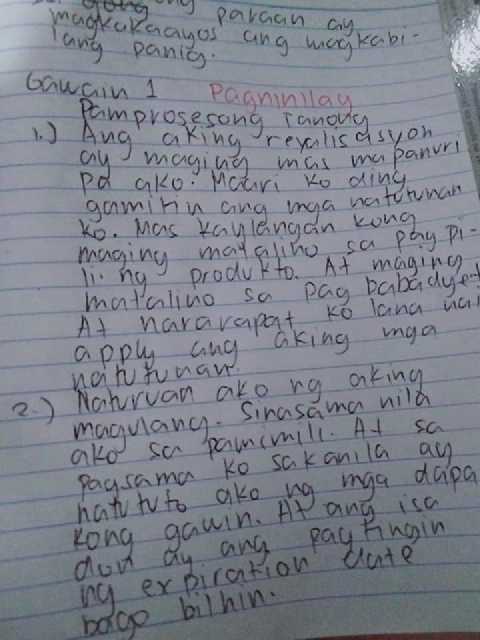 paraan ay
magkakaayos ang magkabi-
lang panig.
Gawain 1 Pagninilay
Pamprosesong Tanong
1.) Ang aking reyalisasyon
ay maging mas mapanuri
pa ako. Maari ko ding
gamitin ang mga natutunan
ko. Mas kaylangan kong
maging matalino sa pag pi-
li ng produkto. At maging
matalino sa pag babadyet
At nararapat ko lang
apply ang aking mga
natutunan.
2.) Naturuan ako ng aking
magulang. Sinasama nila
ako sa pamimili. At sa
pagsama ko sakanila ay
natuto ako ng mga dapa
kong gawin. At ang isa
don ay ang pagtingin
ng expiration date
bago bilhin.